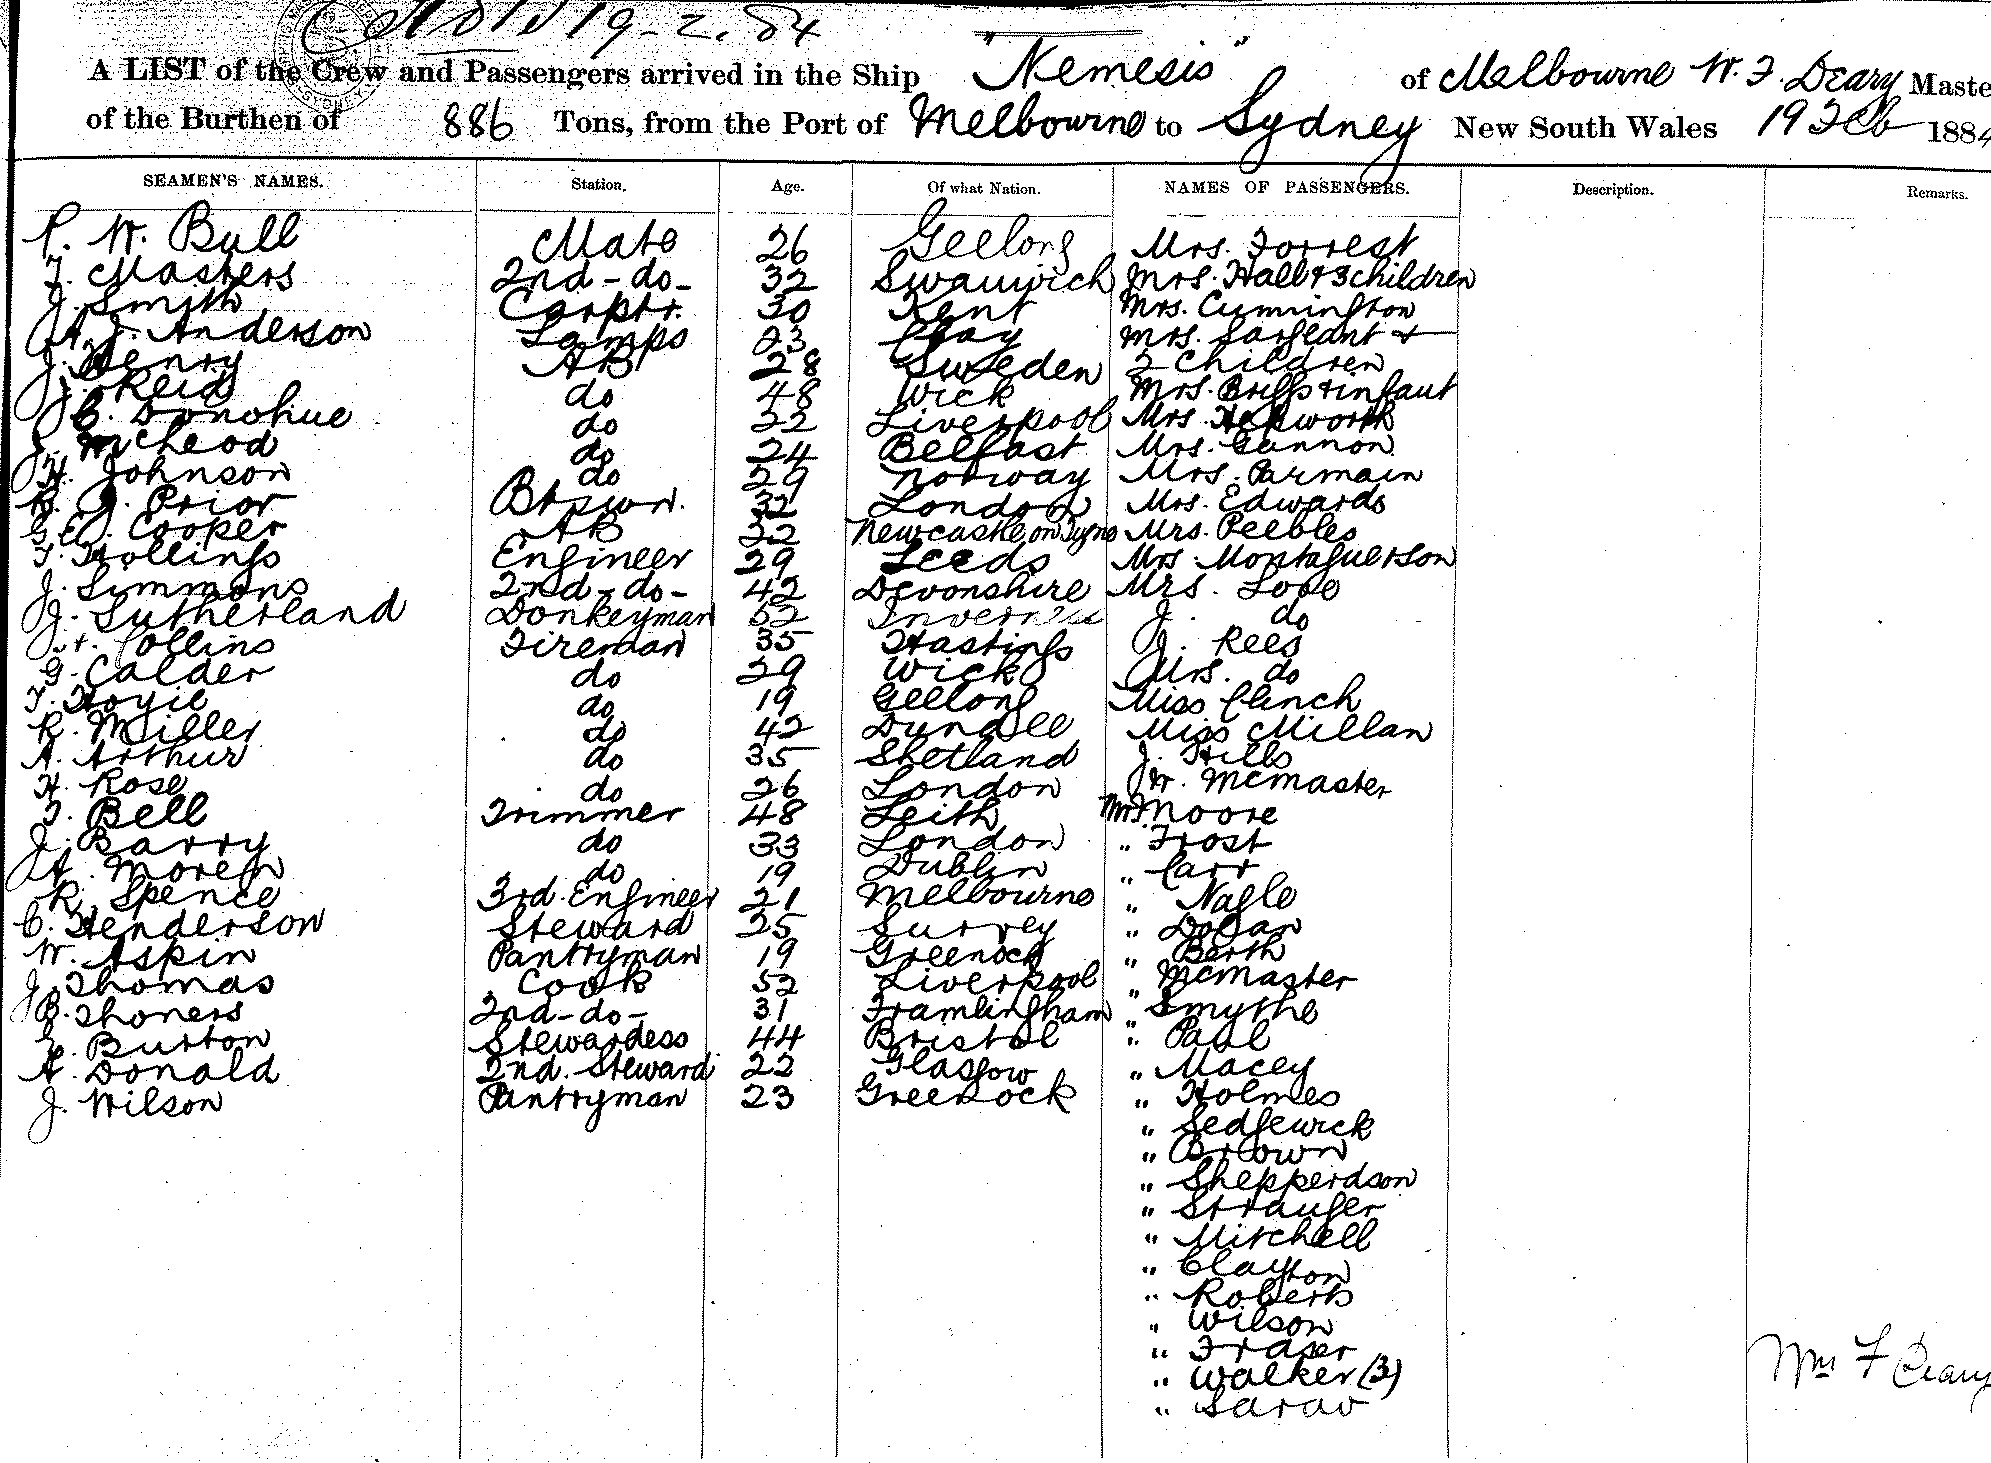 19-2.84
A LIST of the Crew and Passengers arrived in the Ship "Nemesis" of Melbourne W. F. Deary Maste
of the Burthen of 886 Tons, from the Port of Melbourne to Sydney New South Wales 19 Feb 1884
SEAMEN'S NAMES. Station. Age. Of what Nation. NAMES OF PASSENGERS. Description. Remarks.
P. W. Bull Mate 26 Geelong Mrs. Forrest
F. Masters 2nd-do- 32 Swanwich Mrs. Hall & 3 children
J. Smith Carptr. 30 Kent Mrs. Cunnington
A. J. Anderson Lamps 23 Mrs. Sargeant &
J. Henry AB 28 Sweden 2 Children
J. Reid do 48 Wick Mrs. Briggs & infant
C. Donohue do 22 Liverpool Mrs. Hepworth
J. McLeod do 24 Belfast Mrs. Gannon
H. Johnson do 29 Norway Mrs. Parmain
R. J. Prior Btswn. 32 London Mrs. Edwards
G. Cooper AB 22 Newcastle on Tyne Mrs. Peebles
T. Hollings Engineer 29 Leeds Mrs Montague & Son
J. Simmons 2nd-do- 42 Devonshire Mrs. Love
J. Sutherland Donkeyman 52 Inverness J. do
H. Collins Fireman 35 Hastings J. Rees
G. Calder do 29 Wick Mrs. do
T. Hoyie do 19 Geelong Miss Clinch
R. Miller do 42 Dundee Miss Millan
A. Arthur do 35 Shetland J. Hills
H. Rose do 26 London W. McMaster
T. Bell Trimmer 48 Leith Mr. Moore
J. Barry do 33 London " Frost
A. Moren do 19 Dublin " Carr
R. Spence 3rd. Engineer 21 Melbourne " Nagle
C. Henderson Steward 25 Surrey " Dogan
W. Aspin Pantryman 19 Greenock " Berth
J. Thomas Cook 52 Liverpool " McMaster
B. Thoners 2nd-do- 31 Framlingham " Smythe
E. Burton Stewardess 44 Bristol " Paul
A. Donald 2nd. Steward 22 Glasgow " Macey
J. Wilson Pantryman 23 Greenock " Holmes
" Sedgewick
" Brown
" Shepperdson
" Stranger
" Mitchell
" Clayton
" Roberts
" Wilson
" Fraser
" Walker (3)
" Sarav
Wm F Deary